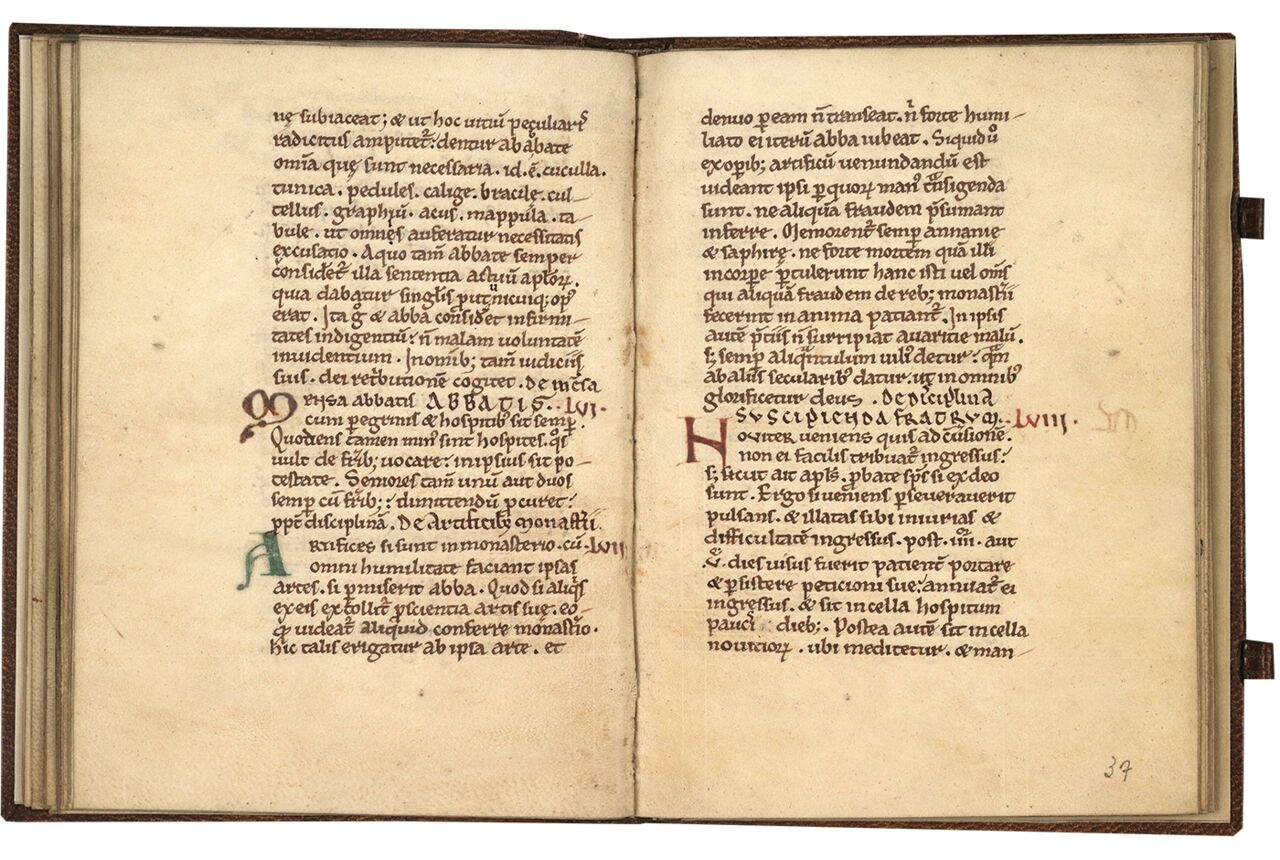 uę subiaceat; & ut hoc uitiū peculiarꝭ
radicitus amputet᷑: dentur ab abbate
omīa quę sunt necessaria. id. ē. cuculla.
tunica. pedules. calige. bracile. cul-
tellus. graphiū. acus. mappula. ta-
bule. ut omnis auferatur necessitatis
excusatio. A quo tam̄ abbate semper
considet᷑ illa sententia actuū aplōꝝ.
quia dabatur singlīs put unicuiq; op̄
erat. Ita g̊ & abba consid̄et infirmi-
tates indigentiū: n̄ malam uoluntatē
inuidentium. In omīb; tam̄ iudiciis
suis. dei ret᷑butionē cogitet. De mēsa
Mensa abbatis ABBATIS. LVI.
cum peꝑgrinis & hospitib; sit semp̄.
Quotiens tamen min᷒ sunt hospites. q̊s
uult de fr̄ib; uocare: in ipsius sit po-
testate. Seniores tam̄ unū aut duos
semp̄ cū fr̄ib;: dimittendū ꝓcuret:
ppt̄ disciplinā. De Artificib; monast̄ii.
Artifices si sunt in monasterio. cū LVII
omni humilitate faciant ipsas
artes. si ꝑmiserit abba. Quod si aliq̇s
ex eis extollit᷑ ꝓ scientia artis suę. eo-
qđ uideat᷑ aliquid conferre monast̄io.
hic talis erigatur ab ipsa arte. et
denuo ꝑ eam n̄ transeat. n̄ forte humi-
liato ei iterū abba iubeat. Siquid ů
ex opib; artificū uenundandū est
uideant ipsi ꝑ quoꝝ man᷒ tᷓnsigenda
sunt. ne aliquā fraudem p̄sumant
inferre. Memorent᷑ semp̄ annanie
& saphirę. ne forte mortem quā illi
in corpe ꝑtulerunt hanc isti uel om̄s
qui aliquā fraudem de reb; monast̄ii
fecerint in anima patiant᷑. In ipsis
autē p̄tiis n̄ surripiat auaritie malū.
s; semp̄ aliqᷓntulum uili᷒ detur. qᷓm
ab aliis secularib᷒ datur. ut in omnib᷒
glorificetur deus. De diciplina
SUSCIPIENDA FRATRUM. LVIII.
Nouiter ueniens quis ad c̄uisionē.
non ei facilis tribuat᷑ ingressus:
s; sicut ait apls̄. ꝓbate sp̄s si ex deo
sunt. Ergo si ueniens ꝑseuerauerit
pulsans. & illatas sibi iniurias &
difficultatē ingressus. post. iiii. aut
.v. dies uisus fuerit patient᷑ portare
& ꝑsistere peticioni suę: annuat᷑ ei
ingressus. & sit in cella hospitum
pauci dieb;. Postea autē sit in cella
nouicioꝝ. ubi meditetur. & man-
37